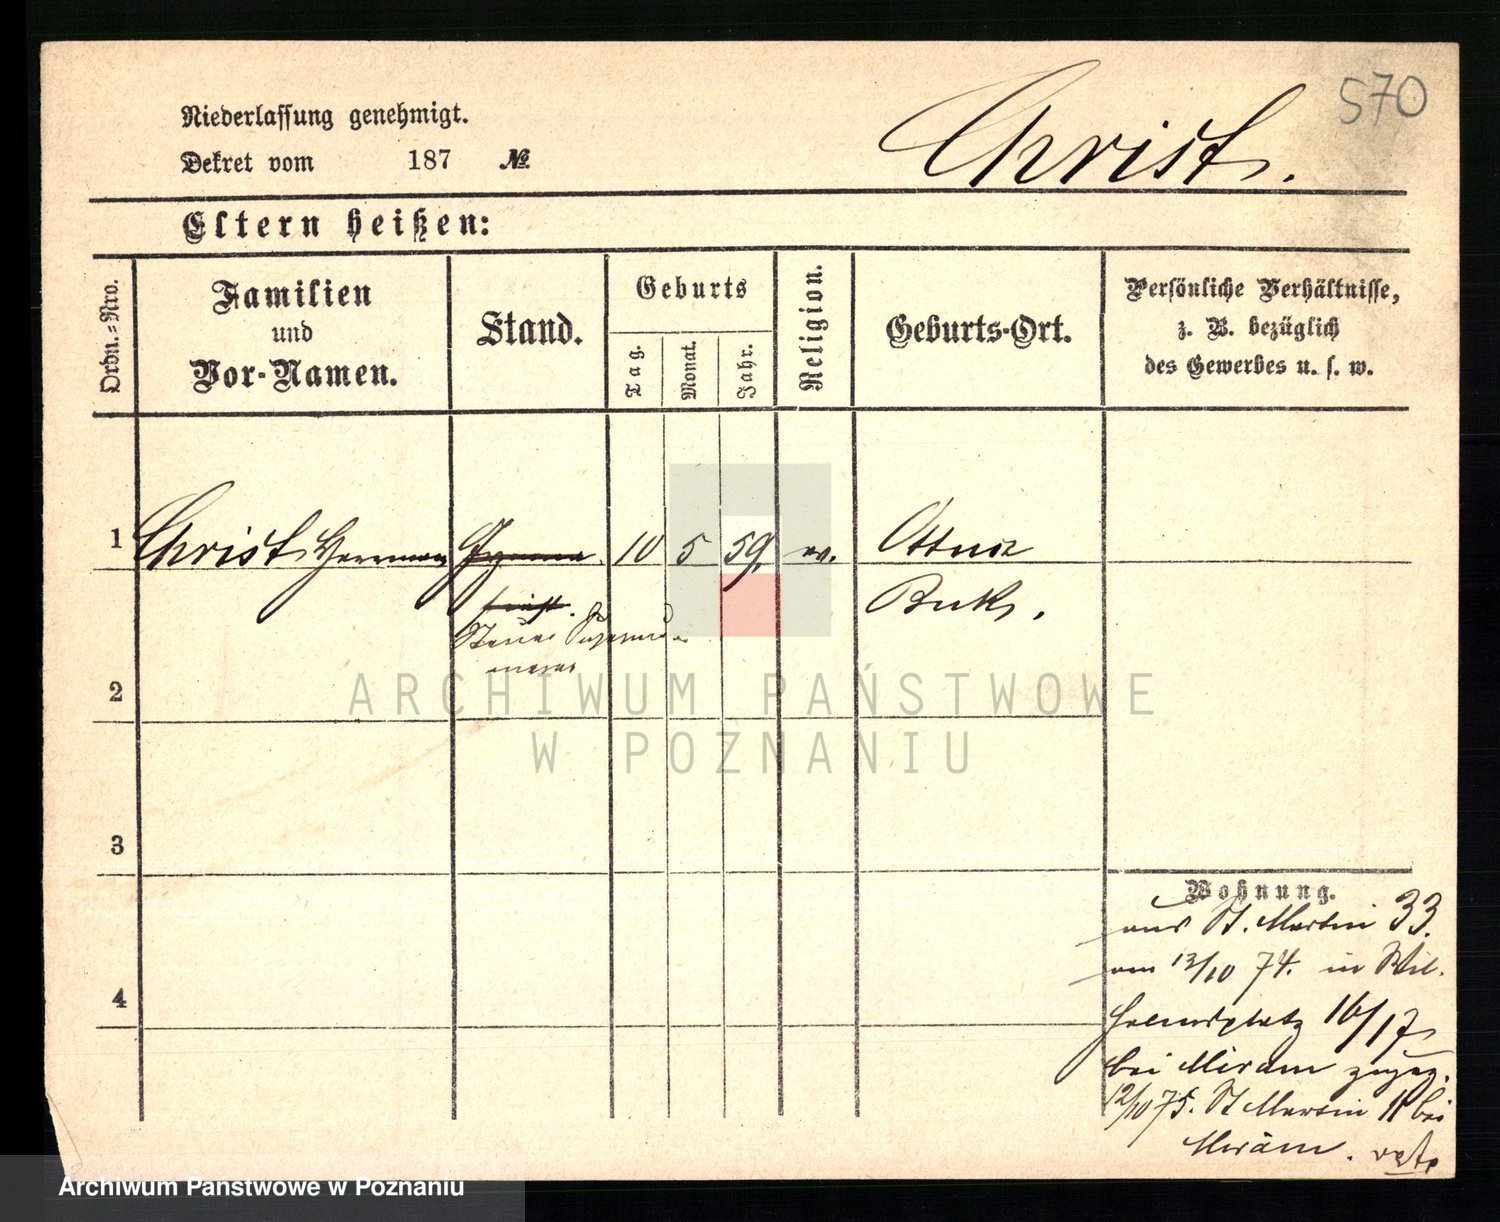 570
Niederlassung genehmigt.
Dekret vom 187 №
Christ.
Eltern heißen:
Ordn.=Nro.
Familien
und
Vor-Namen.
Stand.
Geburts
Tag.
Monat.
Jahr.
Religion.
Geburts-Ort.
Persönliche Verhältnisse,
z. B. bezüglich
des Gewerbes u. s. w.
1 Christ Herrman 10 5 59. ev.
Buk.
2
3
4
Wohnung.
aus St. Martin 33.
am 13/10 74. in Wil-
helmsplatz 16/17
bei Miram
12/10 75. St Martin 11 bei
Miram.
ARCHIWUM PAŃSTWOWE
W POZNANIU
Archiwum Państwowe w Poznaniu